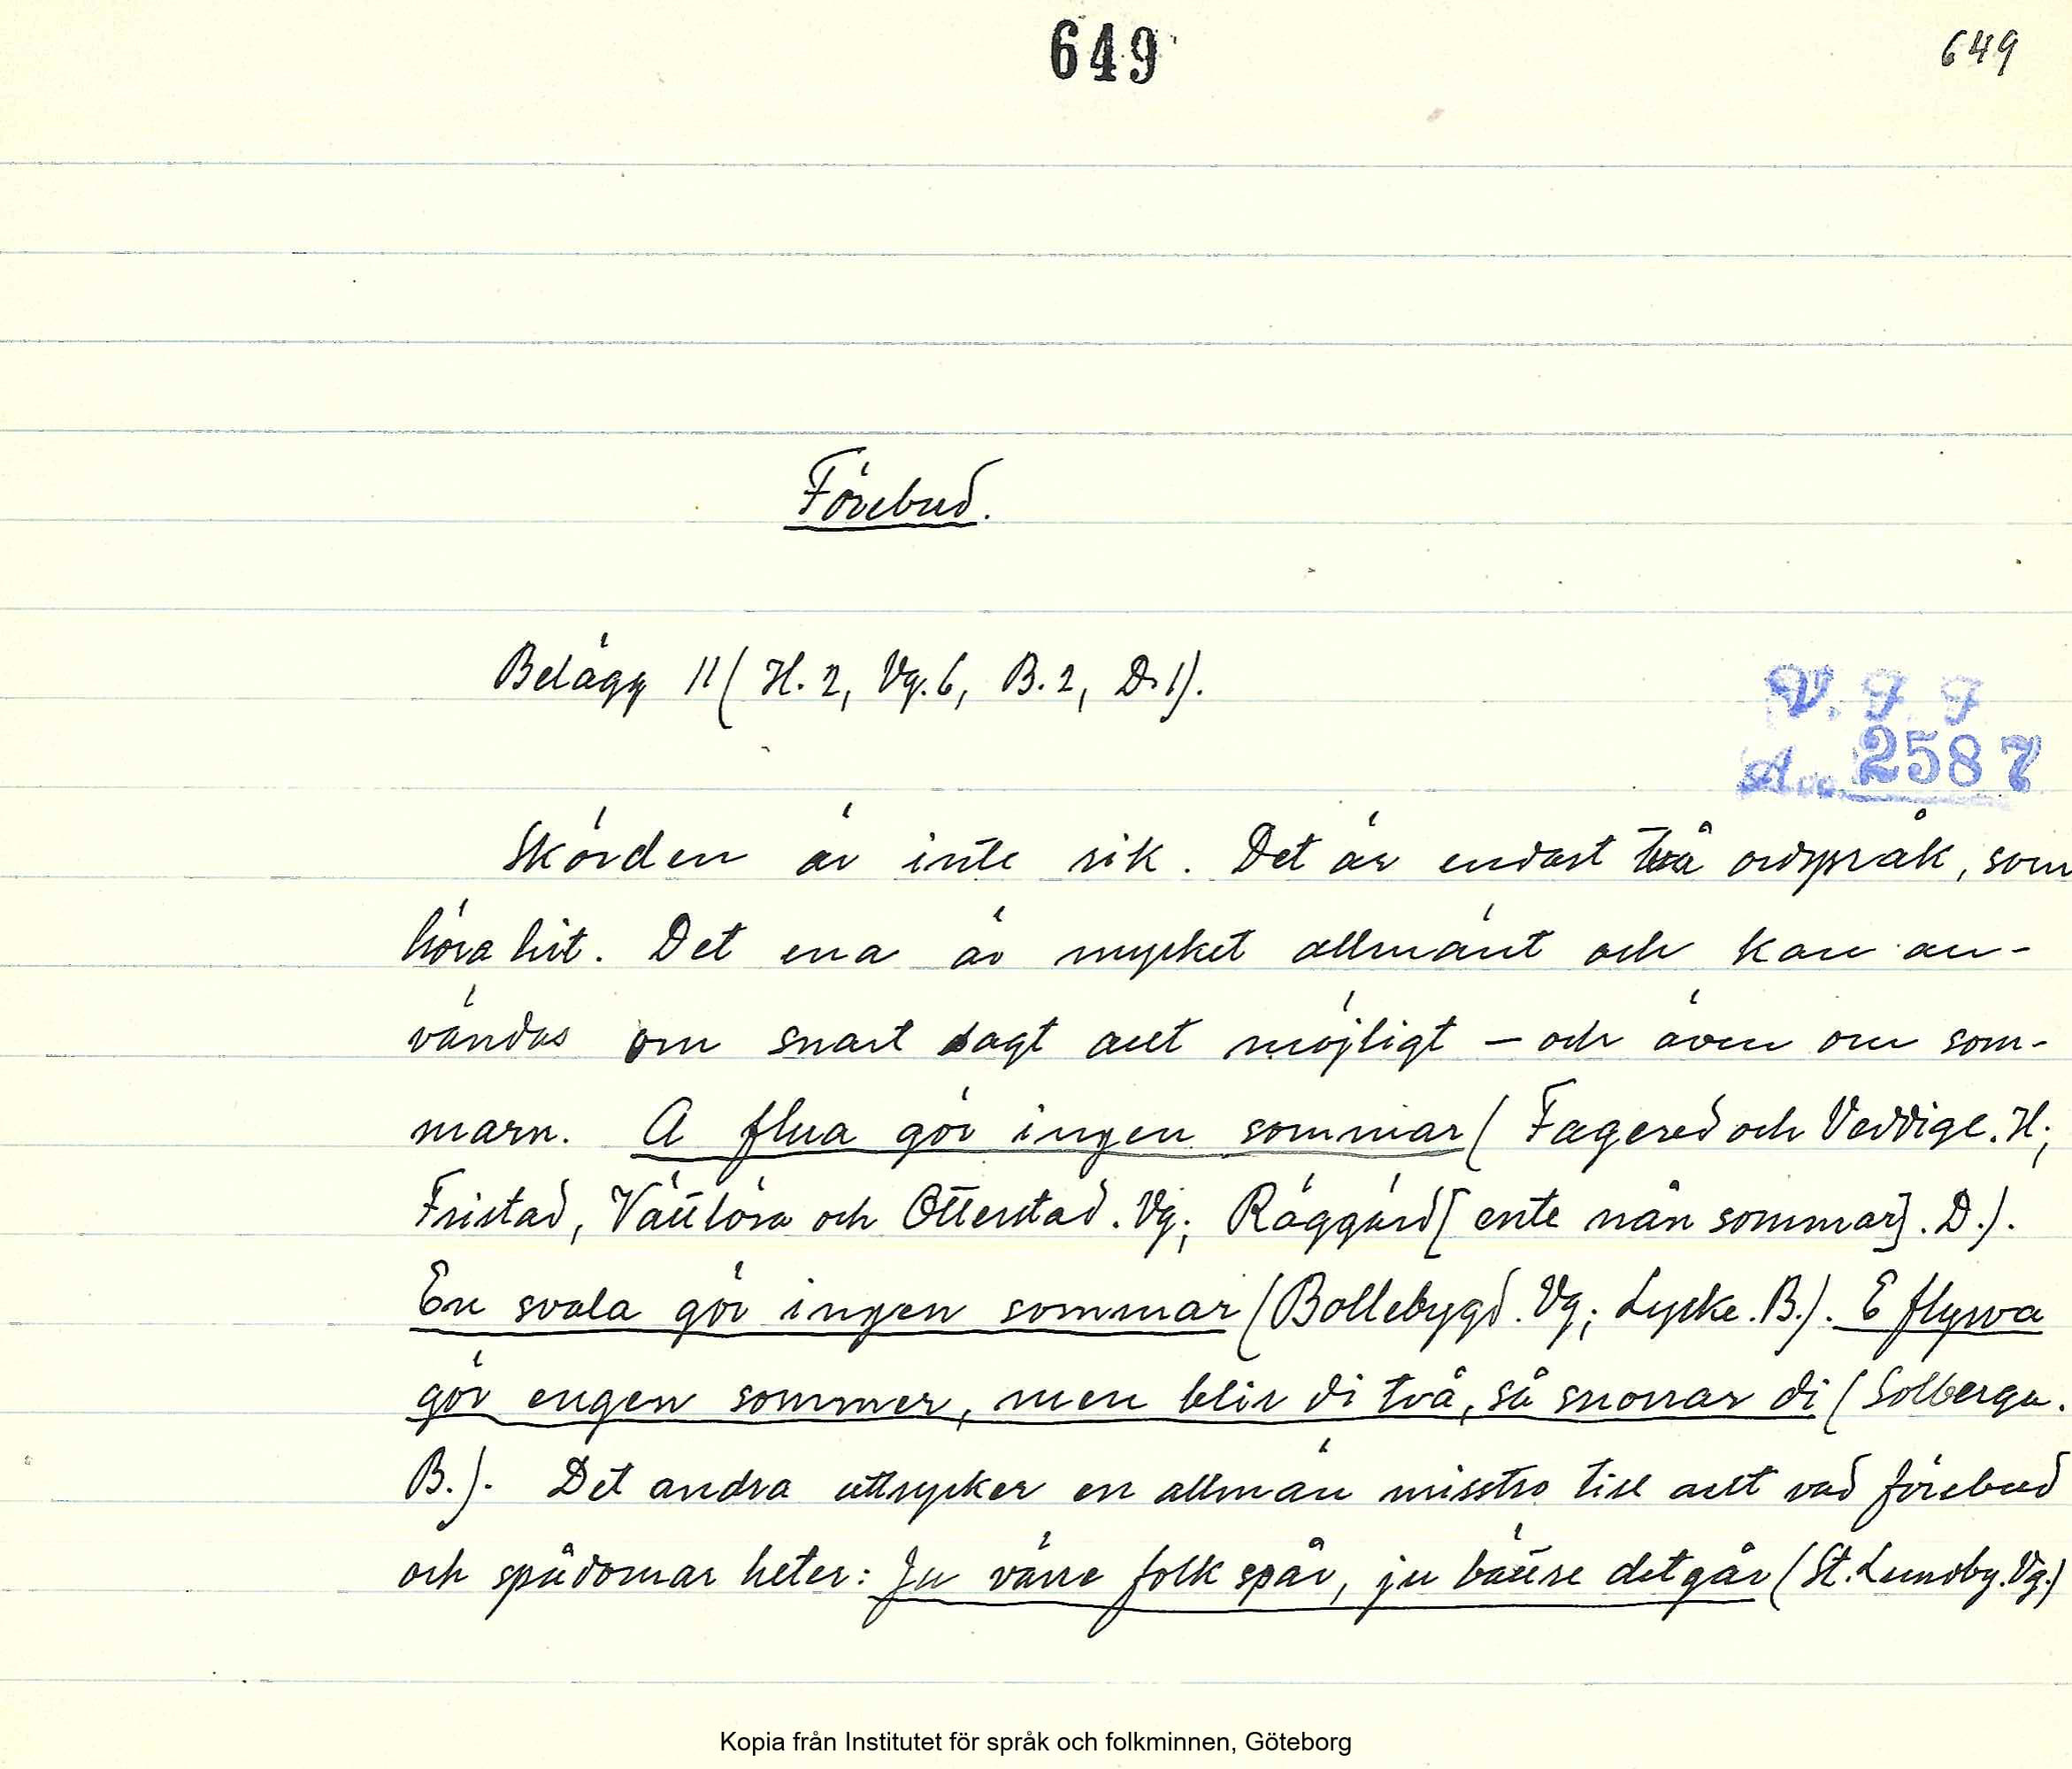 649 649
Förebud.
Belägg 11 (H. 2, Vg. 6, B. 2, D. 1).
V. F F
Acc. 2587
Skörden är inte rik. Det är endast två ordspråk, som
höra hit. Det ena är mycket allmänt och kan an-
vändas om snart sagt allt möjligt – och även om som-
marn. A flua gör ingen sommar (Fagered och Veddige. H;
Fristad, Vättlösa och Otterstad. Vg; Råggärd [ente nån sommar]. D.).
En svala gör ingen sommar (Bollebygd. Vg; Lycke. B.). E flyva
gör engen sommer, men blir di två, så snorrar di (Solberga.
B.). Det andra uttrycker en allmän misstro till allt vad förebud
och spådomar heter: Ju värre folk spår, ju bättre det går (St. Lundby. Vg.)
Kopia från Institutet för språk och folkminnen, Göteborg